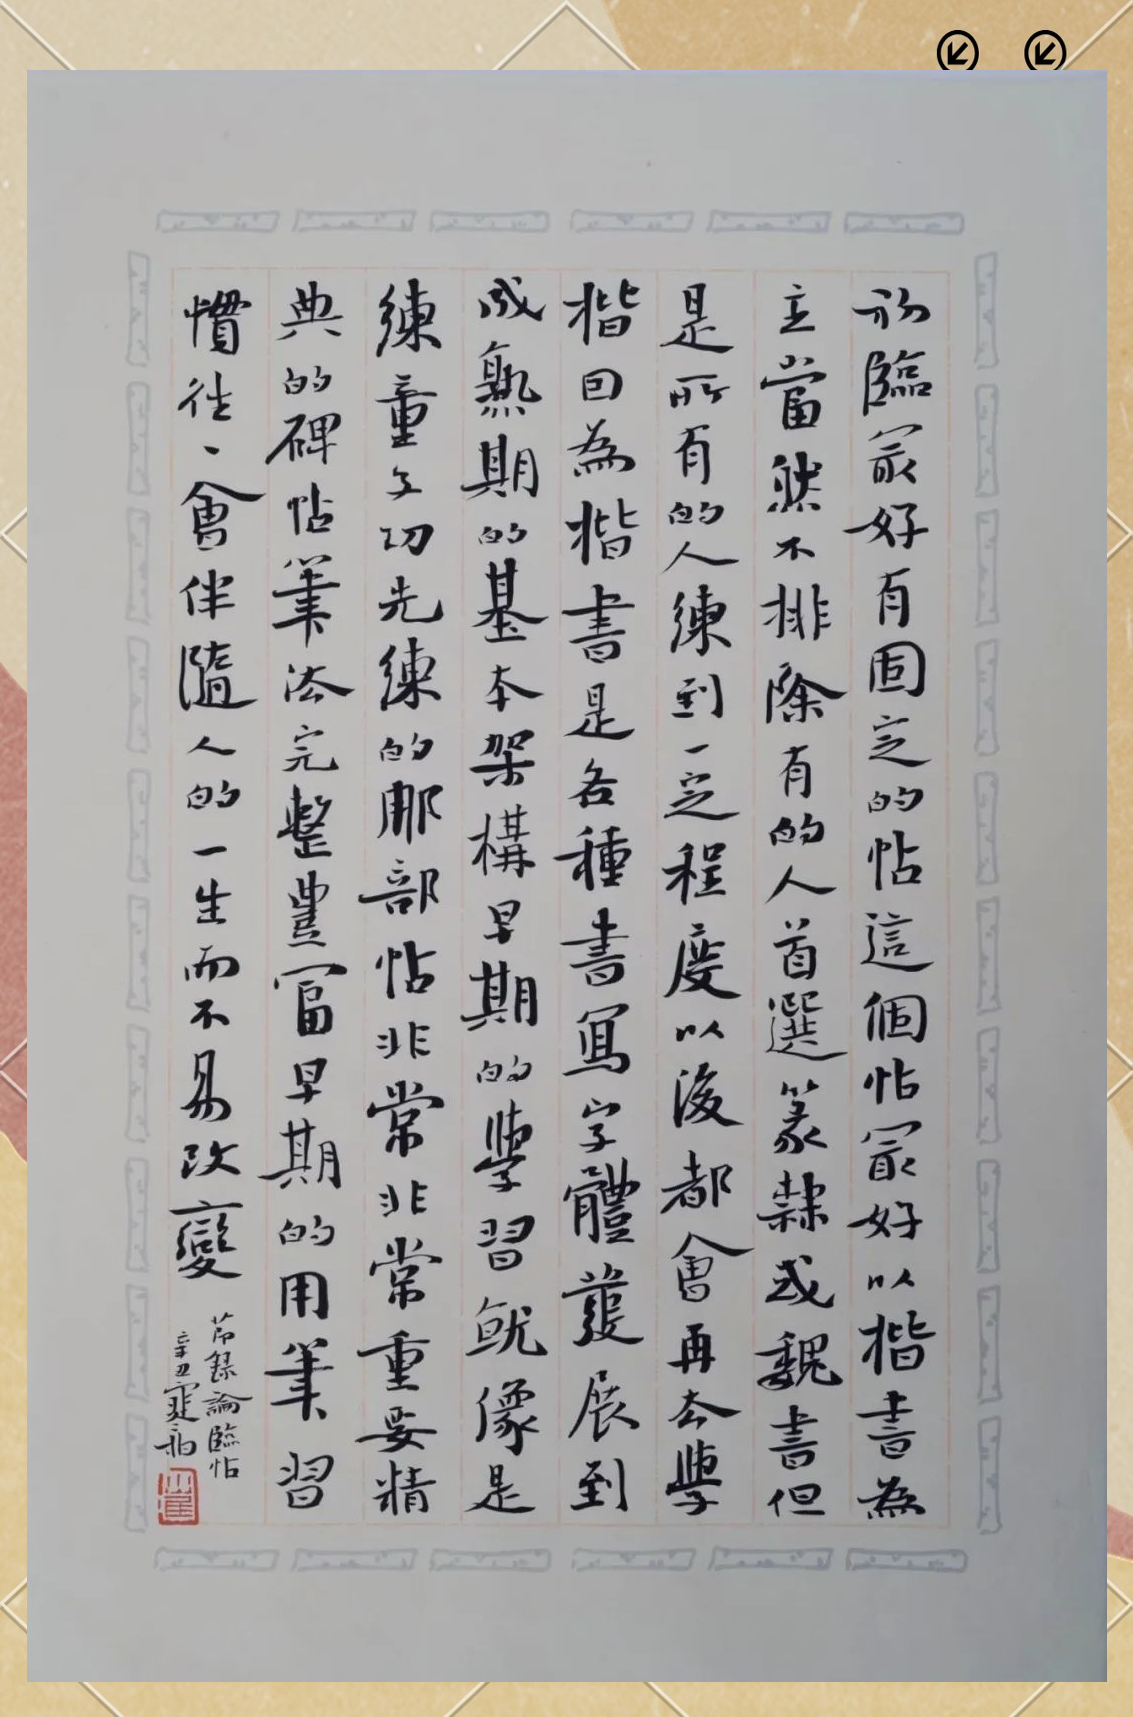 初臨最好有固定的帖這個帖最好以楷書為
主當然不排除有的人首選篆隸或魏書但
是所有的人練到一定程度以後都會再去學
楷回為楷書是各種書寫字體發展到
成熟期的基本架構早期的學習就像是
練童子功先練的那部帖非常非常重要精
典的碑帖筆法完整豐富早期的用筆習
慣往、會伴隨人的一生而不易改變
節錄論臨帖
辛丑